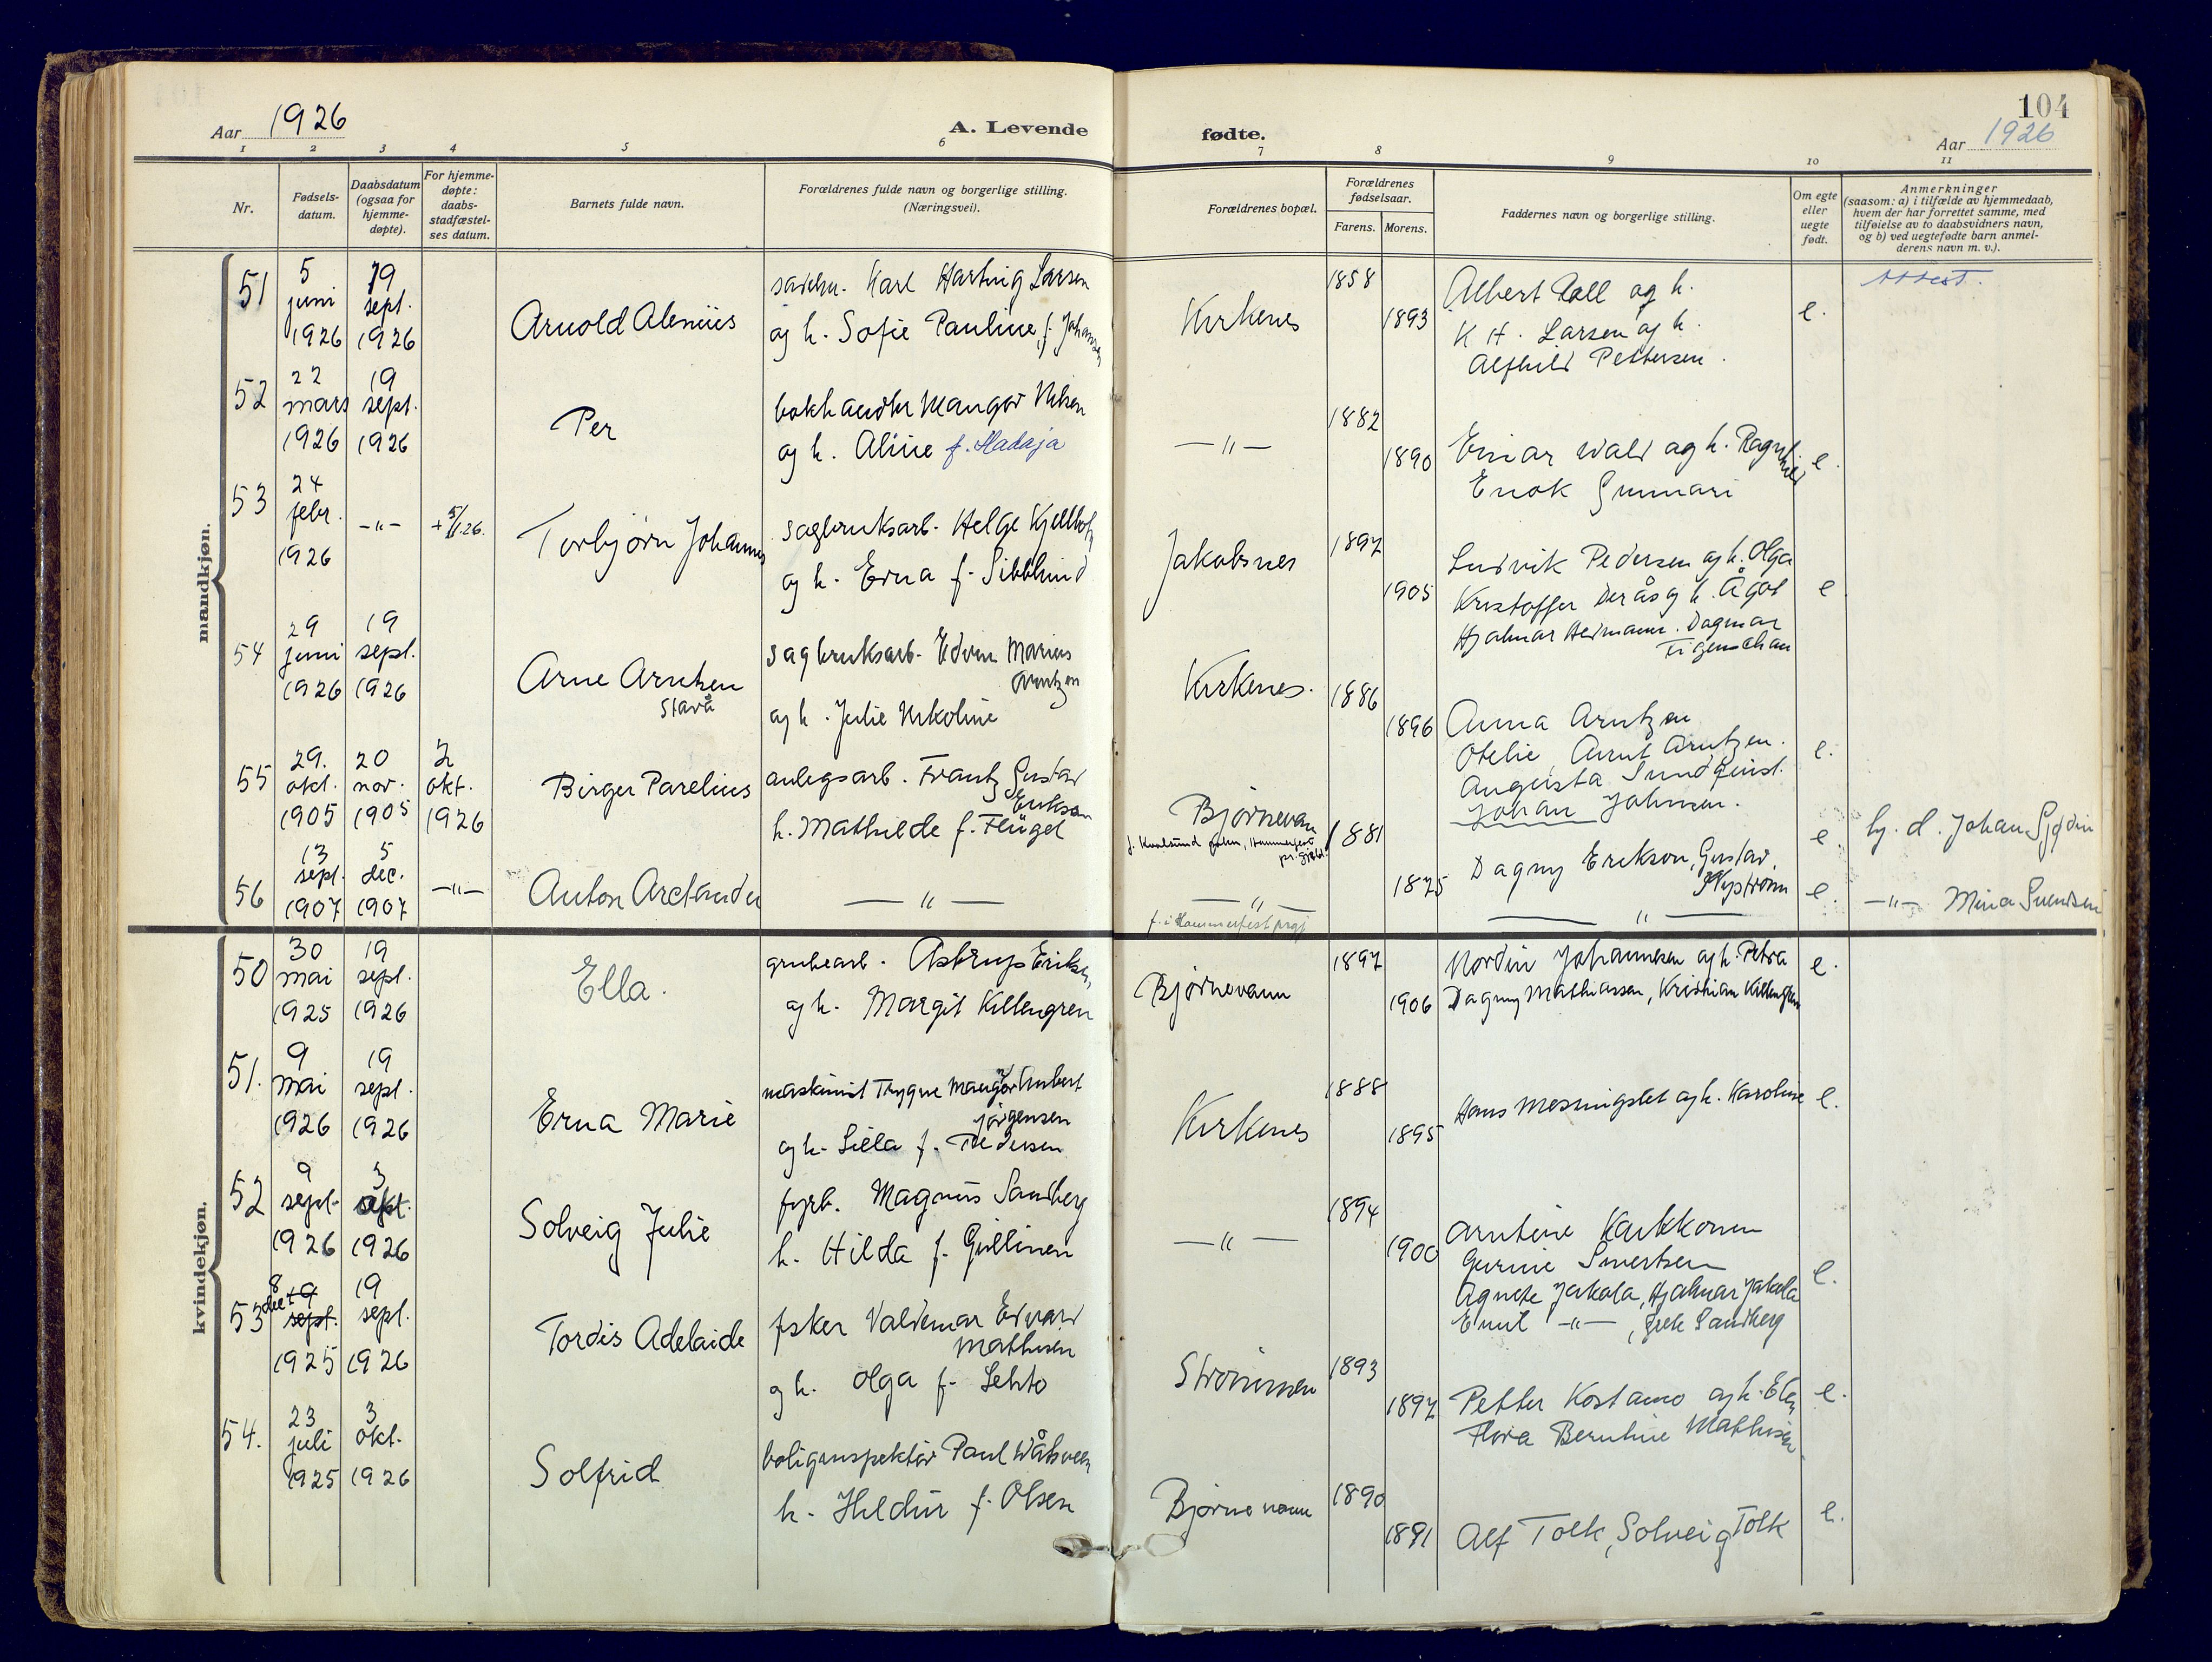 104
Aar 1926
A. Levende fødte.
Aar 1926
1 2 3 4 5 6 7 8 9 10 11
Nr.
Fødsels-datum.
Daabsdatum (ogsaa for hjemme-døpte).
For hjemme-døpte: daabs-stadfæstel-ses datum.
Barnets fulde navn.
Forældrenes fulde navn og borgerlige stilling. (Næringsvei).
Forældrenes bopæl.
Forældrenes fødselsaar.
Farens. Morens.
Faddernes navn og borgerlige stilling.
Om egte eller uegte født.
Anmerkninger
(saasom: a) i tilfælde av hjemmedaab,
hvem der har forrettet samme, med
tilføielse av to daabsvidners navn,
og b) ved uegtefødte barn anmel-
derens navn m. v.).
mandkjøn.
51 5 juni 1926 19 sept. 1926
Arnold Alenius
Karl Hartvig Larsen
og h. Sofie Pauline, f. Johansen
Kirkenes 1858 1893
Albert Roll og h.
K H. Larsen og h.
Alfhild Pettersen.
e. Attest.
52 22 mars 1926 19 sept. 1926
Per
bokhandler Mangor Nilsen
og h. Aline f. Hadaja
—"— 1882 1890
Einar Wald og h. Ragnhild
Enok Gunnari
e.
53 24 febr. 1926 —"—
Torbjørn Johannes
sagbruksarb. Helge
og h. Erna f. Sibblund
Jakobsnes 1897 1905
Ludvik Pedersen og h. Olga
Kristoffer Derås og h. Ågot
Hjalmar Hermann. Dagmar
Figenschau
e
54 29 juni 1926 19 sept. 1926
Arne Arntzen
Stavå
sagbruksarb. Edvin Marius
Arntzen
og h. Julie Nikoline
Kirkenes. 1886 1896
Anna Arntzen
Otelie, Arnt Arntzen.
Augusta Sundquist.
Johan Johnsen.
e.
55 29. okt. 1905 20 nov. 1905 2 okt. 1926
Birger Parelius
anlegsarb. Frantz Gustav
Erikson
h. Mathilde f. Flügel
Bjørnevan
f. Kvalsund sokn, Hammerfest
pr.gjeld.
1881 1875
Dagny Erikson, Gustav
Nystrøm
e. hj. d. Johan Sjødin
56 13 sept. 1907 5 dec. 1907 —"—
Anton Arctander
—"—
—"—
f. i Hammerfest prgj
—"—
e. —"— Mina Svendsen
kvindekjøn.
50 30 mai 1925 19 sept. 1926
Ella.
grubearb. Astrup Eriksen
og h. Margit Killengren
Bjørnevann 1897 1906
Nordin Johannesen og h. Petra
Dagny Mathiassen, Kristian Killengren
e.
51. 9 mai 1926 19 sept. 1926
Erna Marie
maskinist Trygve Mangor Humbert
Jørgensen
og h. Lilla f. Pedersen
Kirkenes 1888 1895
Hans Mesningslet og h. Karoline
e.
52 9 sept. 1926 3 okt. 1926
Solveig Julie
fyrb. Magnus Sandberg
h. Hilda f. Gullinen
—"— 1894 1900
Arntine Karkkonen
Gurine Sivertsen
Agnete Jakola, Hjalmar Jakola
Emil —"—, Grete Sandberg
e.
53 8 dec. 19 sept. 1925 19 sept. 1926
Tordis Adelaide
fisker Valdemar Edvard
Mathisen
og h. Olga f. Lehto
Strømmen 1893 1897
Petter Kostamo og h. Elen
Flora Berntine Mathisen
e.
54. 23 juli 1925 3 okt. 1926
Solfrid
boliginspektør Paul Wåhsveen
h. Heldur f. Olsen
Bjørnevann 1890 1891
Alf Tolk, Solveig Tolk
e.